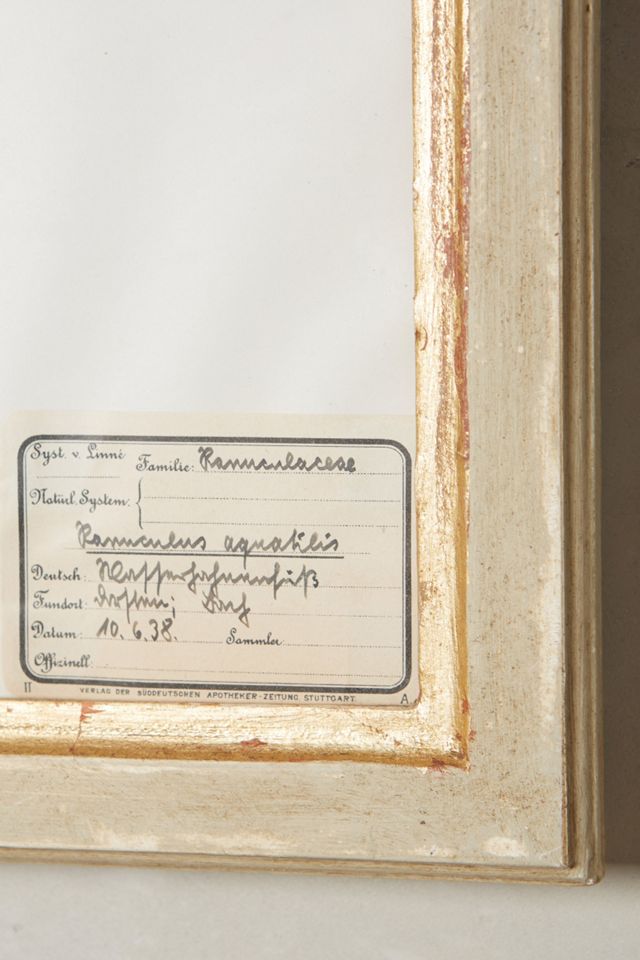 Syst. v. Linné
Familie: Ranunculaceae
Natürl. System:
Ranunculus aquatilis
Deutsch: Wasserhahnenfuß
Fundort: Dorsten; Bach
Datum: 10. 6. 38. Sammler:
Offizinell:
II VERLAG DER SÜDDEUTSCHEN APOTHEKER-ZEITUNG STUTTGART. A